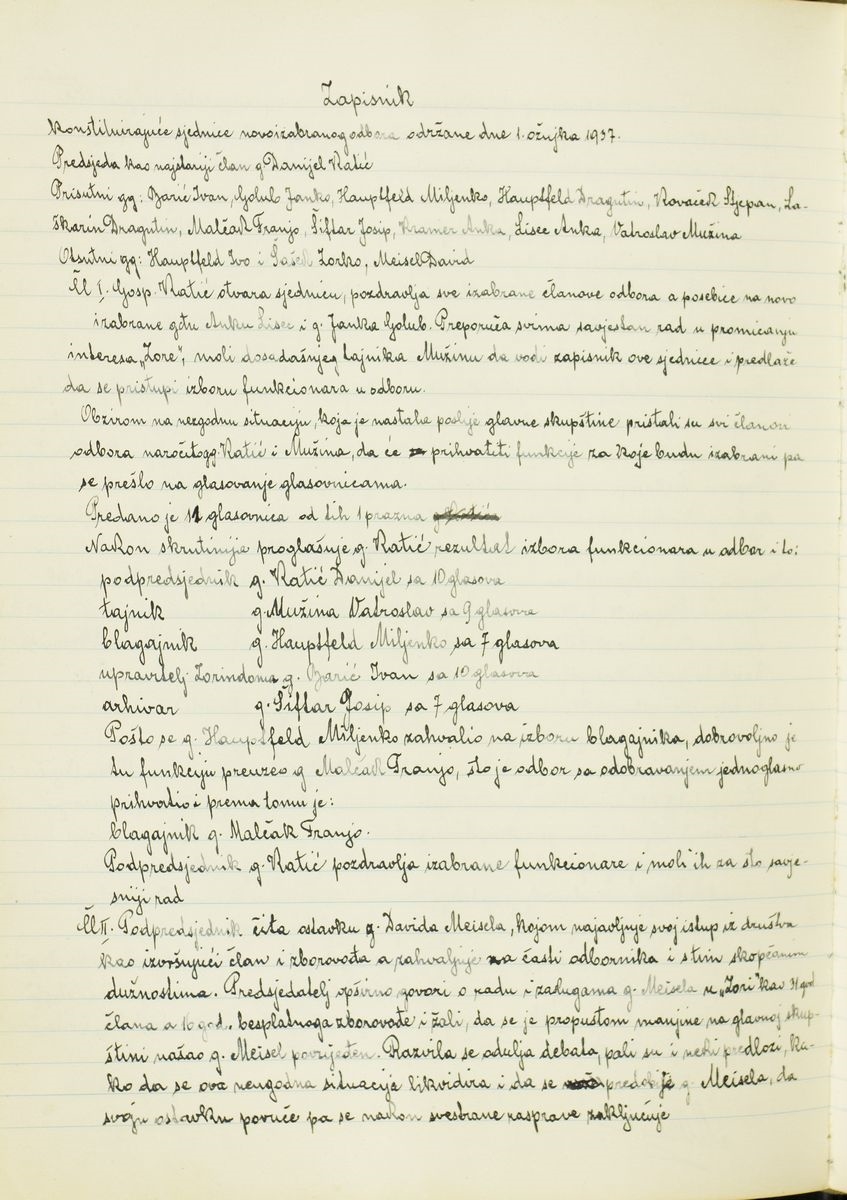 Zapisnik
Konstituirajuće sjednice novoizabranog odbora održane dne 1. ožujka 1937.
Predsjeda kao najstariji član g Danijel Katić
Prisutni gg: Barić Ivan, Golub Janko, Hauptfeld Miljenko, Hauptfeld Dragutin, Kovaček Stjepan, La-
škarin Dragutin, Malčak Franjo, Šiftar Josip, Kramer Anka, Lisec Anka, Vatroslav Mužina
Otsutni gg: Hauptfeld Ivo i Šašek Zorko, Meisel David
Čl I. Gosp. Katić otvara sjednicu, pozdravlja sve izabrane članove odbora a posebice na novo
izabrane gđu Anku Lisec i g. Janka Golub. Preporuča svima savjestan rad u promicanju
interesa „Zore", moli dosadašnjeg tajnika Mužinu da vodi zapisnik ove sjednice i predlaže
da se pristupi izboru funkcionara u odboru.
Obzirom na nezgodnu situaciju, koja je nastala poslije glavne skupštine pristali su svi članovi
odbora naročito gg. Katić i Mužina, da će prihvatiti funkcije za koje budu izabrani pa
se prešlo na glasovanje glasovnicama.
Predano je 11 glasovnica od tih 1 prazna
Nakon skrutinija proglašuje g. Katić rezultat izbora funkcionara u odbor i to:
podpredsjednik g. Katić Danijel sa 10 glasova
tajnik g. Mužina Vatroslav sa 9 glasova
blagajnik g. Hauptfeld Miljenko sa 7 glasova
upravitelj Zorindoma g. Barić Ivan sa 10 glasova
arhivar g. Šiftar Josip sa 7 glasova
Pošto se g. Hauptfeld Miljenko zahvalio na izboru blagajnika, dobrovoljno je
tu funkciju preuzeo g Malčak Franjo, što je odbor sa odobravanjem jednoglasno
prihvatio i prema tomu je:
blagajnik g. Malčak Franjo.
Podpredsjednik g. Katić pozdravlja izabrane funkcionare i moli ih za što savje-
sniji rad
Čl II. Podpredsjednik čita ostavku g. Davida Meisela, kojom najavljuje svoj istup iz društva
kao izvršujući član i zborovođa a zahvaljuje na časti odbornika i s tim skopčanim
dužnostima. Predsjedatelj opširno govori o radu i zaslugama g. Meisela u „Zori" kao 31 god
člana a 16 god. besplatnoga zborovođe i žali, da se je propustom manjine na glavnoj skup-
štini našao g. Meisel povrijeđen. Razvila se odulja debata, pali su i neki predlozi, ka-
ko da se ova neugodna situacija likvidira i da se predobije g. Meisela, da
svoju ostavku povuče pa se nakon svestrane rasprave zaključuje